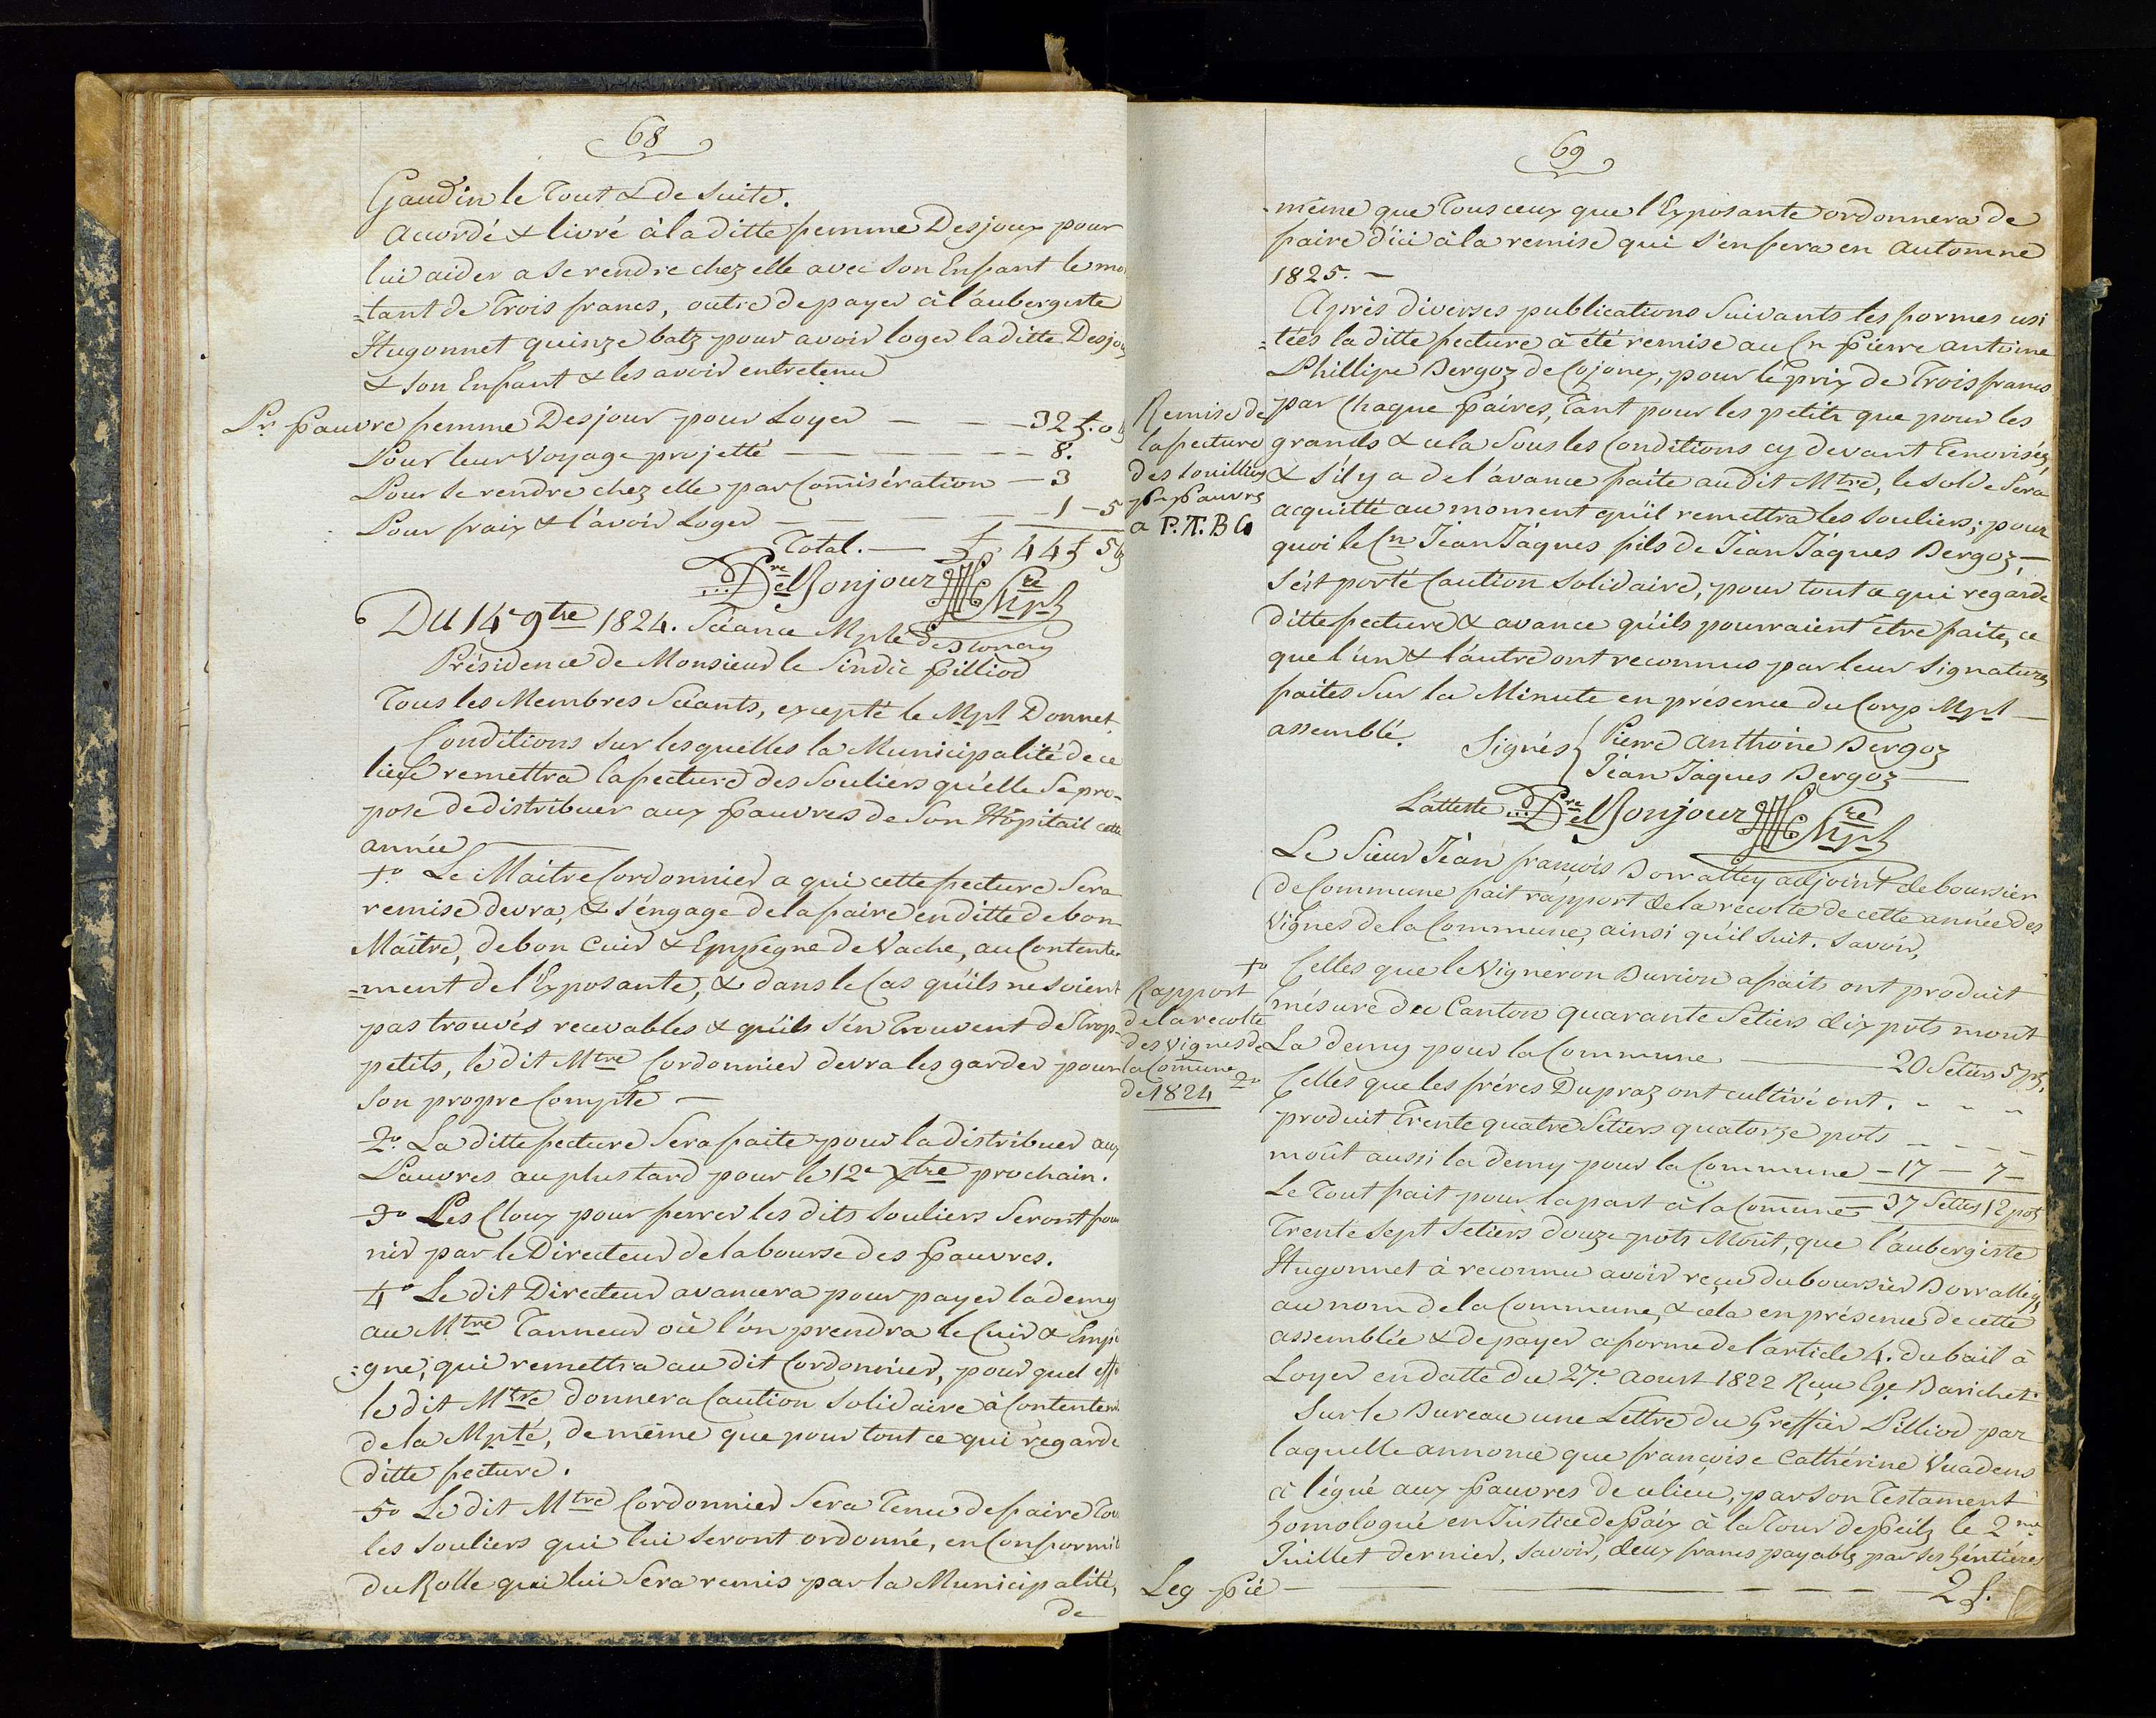 68
Gaudin le Tout & de suite.
Accordé & livré à la ditte femme Desjoux pour
lui aider a se rendre chez elle avec son Enfant le mo
=tant de Trois francs, outre de payer à l'aubergiste
Hugonnet quinze batz pour avoir loger la ditte Desjoux
& son Enfant & les avoir entretenu
Pr. Pauvre femme Desjoux pour Loyer — — — 32 f. 0 bz
Pour leur Voyage projetté — — — — — 8.
Pour se rendre chez elle par Comisération — 3
Pour fraix & l'avoir Loger — — — — 1 — 5
Total. — f. 44 f 5 bz
Dre el Bonjour Secre Mpl
Du 14e 9bre 1824. Séance Mple
Présidence de Monsieur le Sindic Pilliod
Tous les Membres Séants, excepté le Mpl Donnet
Conditions sur lesquelles la Municipalité de ce
lieu remettra la fecture des Souliers qu'elle se pro-
pose de distribuer aux Pauvres de son Hôpitail cette
année
1o. Le Maitre Cordonnier a qui cette fecture Sera
remise devra, & s'éngage de la faire en ditte de bon
Maitre, de bon Cuir & Empeigne de Vache, au Contente-
=ment de l'Exposante, & dans le Cas qu'ils ne soient
pas trouvés recevables & qu'ils s'én trouvent de trop
petits, le dit Mtre Cordonnier devra les garder pour
son propre Compte —
2o. La ditte fecture Sera faite pour la distribuer aux
Pauvres au plus tard pour le 12e Xbre prochain.
3o Les Cloux pour ferrer les dits Souliers Seront four
nir par le Directeur de la bourse des Pauvres.
4o Le dit Directeur avancera pour payer la demy
au Mtre Tanneur où l'on prendra le Cuir & Empei
=gne, qui remettra au dit Cordonnier, pour quel effet
le dit Mtre donnera Caution Solidaire à Contentem
de la Mpté, de même que pour tout ce qui regarde
ditte fecture.
5o Le dit Mtre Cordonnier Sera Tenu de faire Tou
les souliers qui lui seront ordonné, en Conformit
du Rolle qui lui Sera remis par la Municipalité,
de
69
même que Tous ceux que l'Exposante ordonnera de
faire d'ici à la remise qui s'en fera en automne
1825. —
Après diverses publications Suivants les formes usi
=tées la ditte fecture à été remise au Cn Pierre antoine
Phillipe Bergoz de Cojonex, pour le prix de Trois francs
par Chaque Paires, Tant pour les petits que pour les
grands & cela Sous les Conditions cy devant Tenorisées,
& s'il y a de l'avance faite au dit Mtre, le solde Sera
acquitté au moment qu'il remettra les Souliers; pour
quoi le Cn Jéan Jâques fils de Jéan Jâques Bergoz, —
s'ést porté Caution Solidaire, pour tout ce qui regarde
ditte fecture & avance qu'ils pourraient être faite, ce
que l'un & l'autre ont reconnus par leur Signatures
faites Sur la Minute en présence du Corps Mpl —
assemblé.
Remise de
la fecture
des souilliers
pr Pauvres
a P. A. B G
Signés { Pierre Anthoine Bergoz
Jéan Jâques Bergoz —
L'atteste Dre el Bonjour Secre Mpl
Le Sieur Jéan françois Dorvalley adjoint de boursier
de Commune fait rapport de la recolte de cette année des
Vignes de la Commune, ainsi qu'il suit. Savoir,
1o Celles que le Vigneron Burion a fait ont produit
mésure du Canton quarante Sétiers dix pots mout
La demy pour la Commune — 20 Setiers 5 pts.
2o Celles que les fréres Dupraz ont cultivé ont. - - -
produit Trente quatre Sétiers quatorze pots - - - -
moût aussi la demy pour la Commune — 17 — 7 —
Le Tout fait pour la part à la Comune — 37 Setiers 12 pots
Rapport
de la recolte
des vignes de
la Comune
de 1824
Trente Sept Setiers douze pots Moût, que l'aubergiste
Hugonnet à reconnu avoir reçu du boursier Dorvalley
au nom de la Commune, & cela en présence de cette
assemblée & de payer a forme de l'article 4. du bail à
Loyer en datte du 27e. aoust 1822 Reçu Ege. Barichet.
Sur le Bureau une Lettre du Greffier Pilliod par
laquelle annonce que françoise Cathérine Vuadens
à légué aux Pauvres de ce lieu, par son Testament
homologué en Justice de Paix à la Tour de Peilz le 2me.
Juillet dernier, savoir, deux francs payable par ses héritiéres
Leg Pié — — — — — — 2 f.